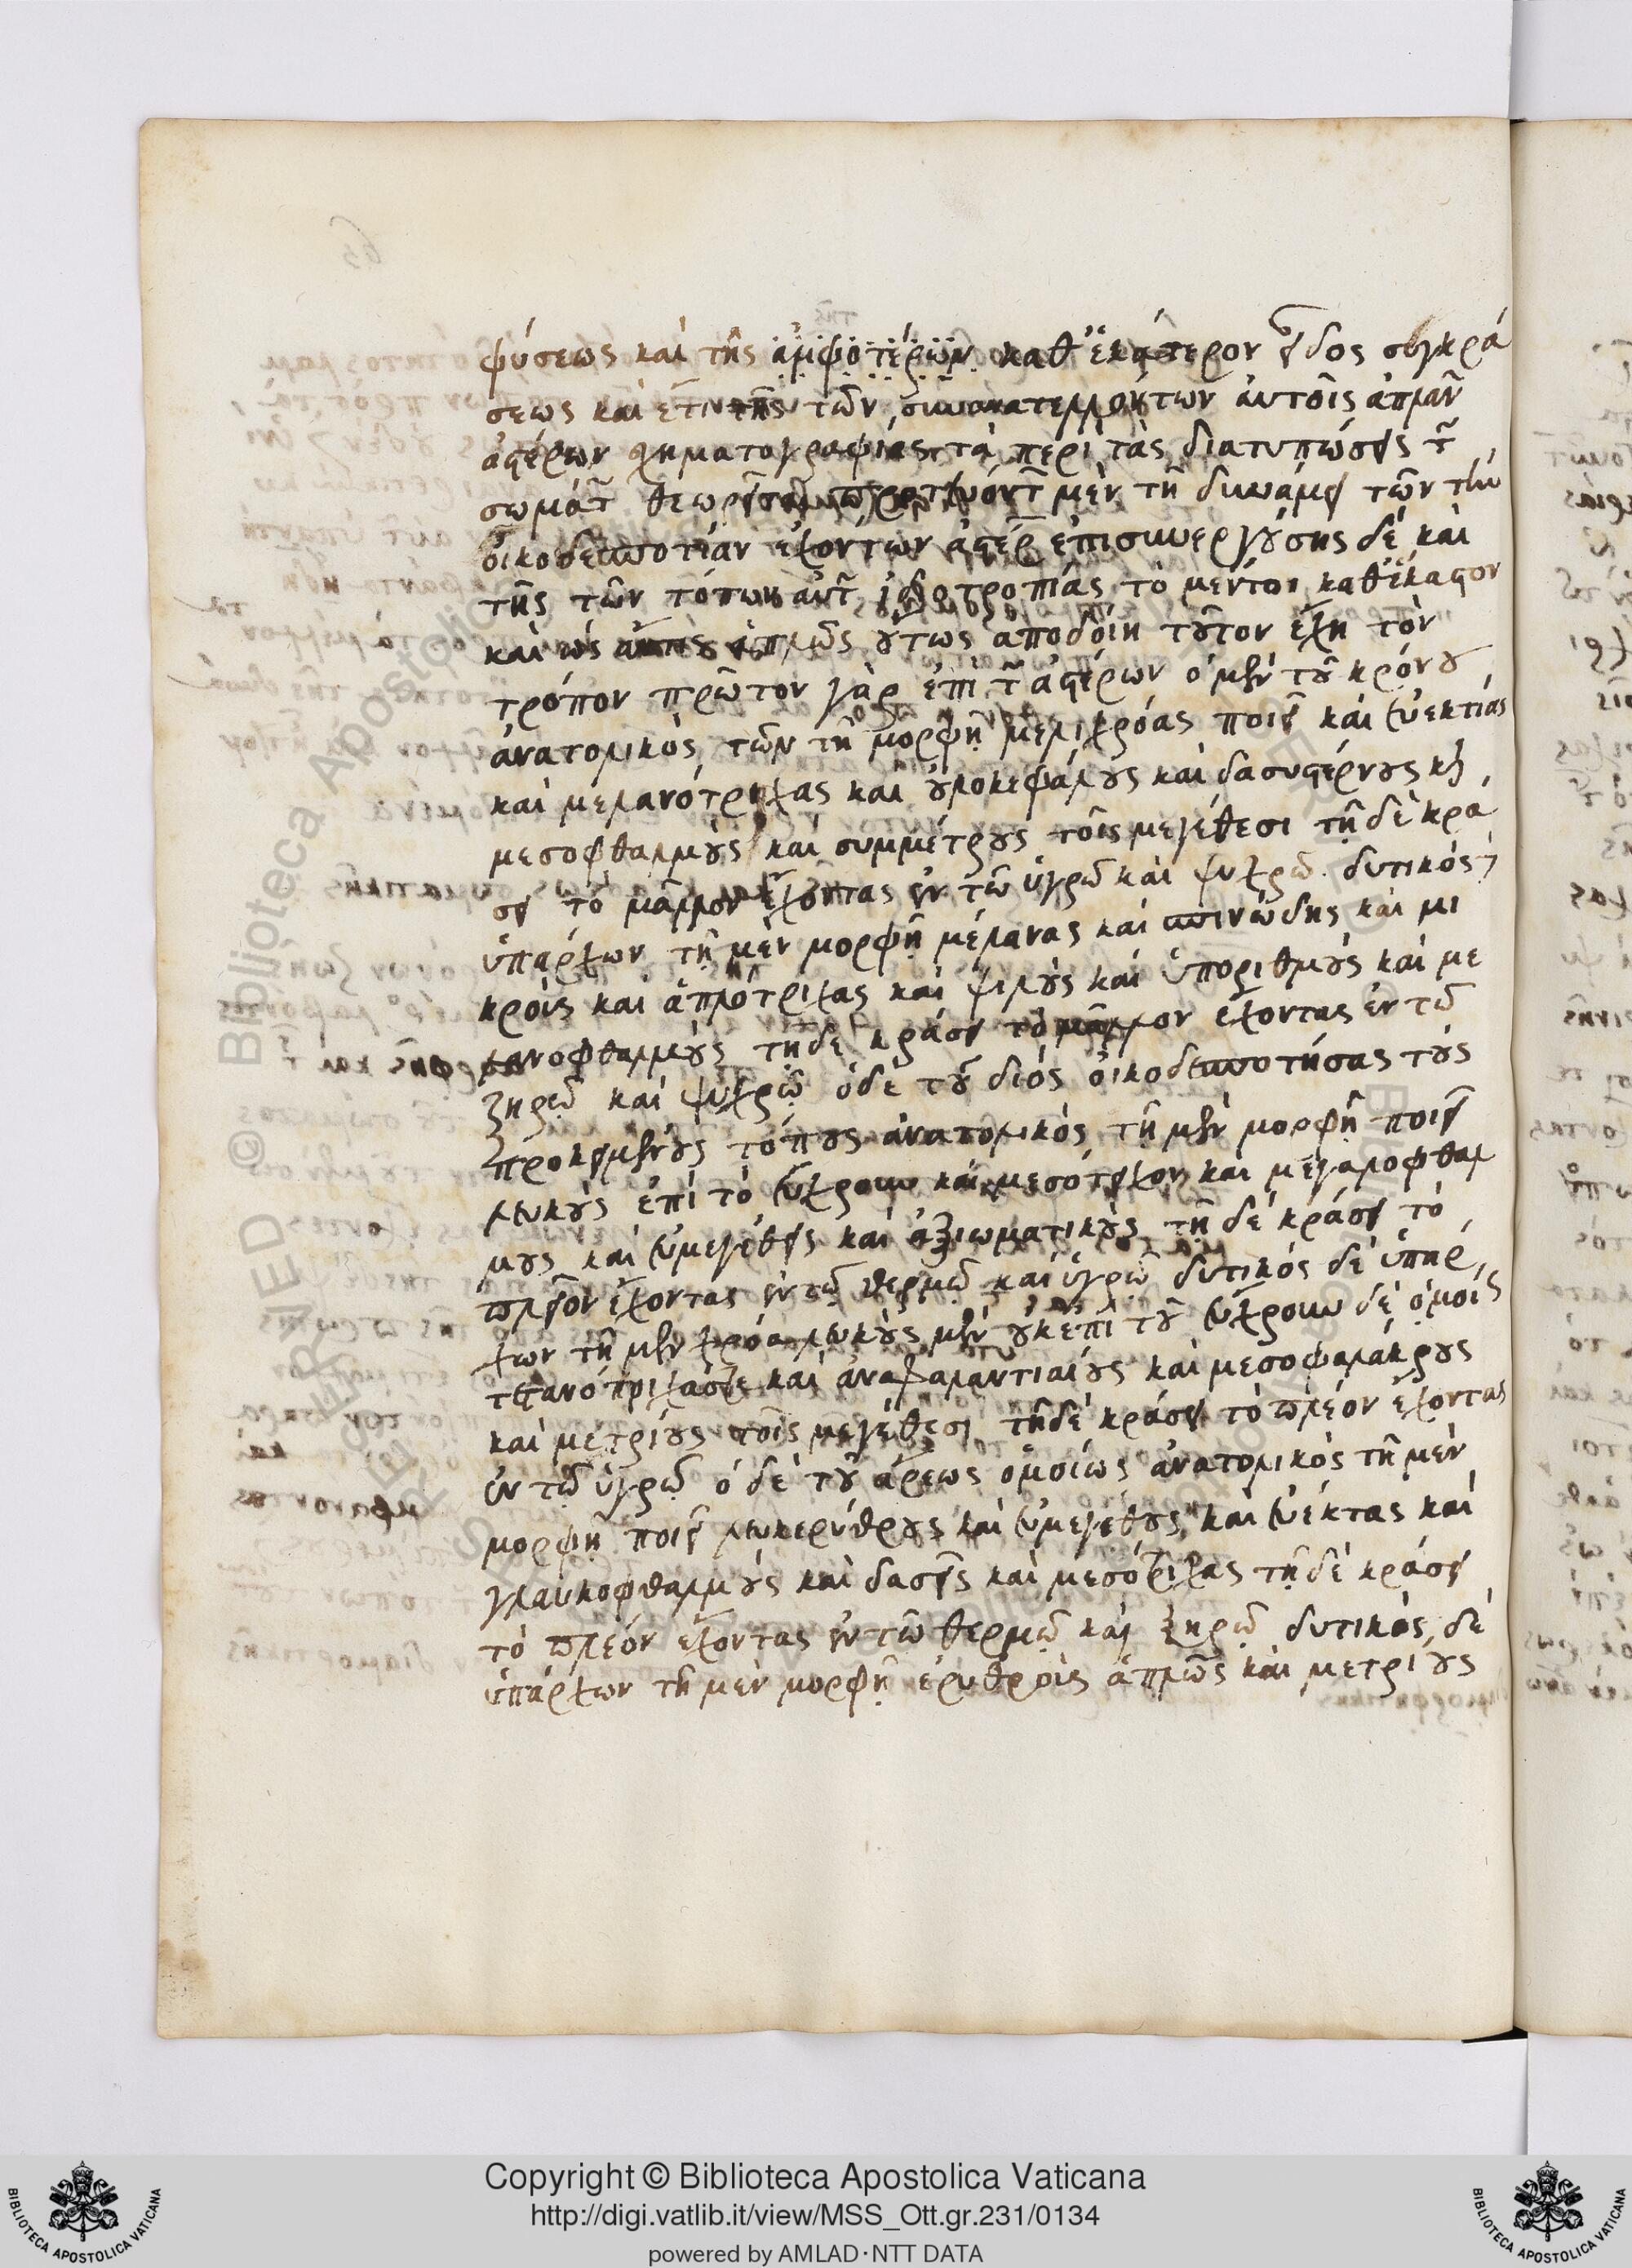 φύσεως καὶ τῆς ἀμφοτέρων καθ ἑκάτερον εἶδος συγκρά
σεως καὶ ἔτι τῆς τῶν συνανατελλόντων αὐτοῖς ἀπλαν
ἀστέρων σχηματογραφίας τὰ περὶ τὰς διατυπώσεις τ
σωμάτ θεωρεῖσθαι πρωτευόντ μὲν τῇ δυνάμει τῶν τὴν
οἰκοδεσποτίαν ἐχόντων ἀστέρ ἐπισυνεργούσης δὲ καὶ
τῆς τῶν τόπων αὐτ ἰδιοτροπίας τὸ μέντοι καθ ἕκαστον
καὶ ὡς ἁπλῶς οὕτως ἀποδοίη τοῦτον ἔχη τὸν
τρόπον πρῶτον γὰρ ἐπὶ τ ἀστέρων ὁ μὲν τοῦ κρόνου
ἀνατολικὸς τῶν τῇ μορφῇ μελιχρόας ποιεῖ καὶ εὐεκτίας
καὶ μελανότριχας καὶ οὐλοκεφάλους καὶ δασυστέρνους καὶ
μεσοφθάλμους καὶ συμμέτρους τοῖς μεγέθεσι τῇ δὲ κρά
σει τὸ μᾶλλον ἔχοντας ἐν τῷ ὑγρῷ καὶ ψυχρῷ. δυτικὸς
ὑπάρχων τῇ μὲν μορφῇ μέλανας καὶ σπινώδης καὶ μι
κροὺς καὶ ἁπλότριχας καὶ ψιλοὺς καὶ ὑπορίθμους καὶ με
λανοφθάλμους τῇ δὲ κράσει τὸ μᾶλλον ἔχοντας ἐν τῷ
ξηρῷ καὶ ψυχρῷ ὁ δὲ τοῦ διὸς οἰκοδεσποτήσας τοὺς
προκειμένους τόπους ἀνατολικὸς τῇ μὲν μορφῇ ποιεῖ
λευκοὺς ἐπὶ τὸ εὔχρουν καὶ μεσότριχον καὶ μεγαλοφθάλ
μους καὶ εὐμεγέθεις καὶ ἀξιωματικοὺς τῇ δὲ κράσει τὸ
πλεῖον ἔχοντας ἐν τῷ θερμῷ καὶ ὑγρῷ δυτικὸς δὲ ὑπάρ
χων τῇ μὲν χρόα λευκοὺς μὲν οὐκ ἐπὶ τοῦ εὔχρουν δὲ ὁμοίς
τετανότριχάς τε καὶ ἀναφαλαντιαίους καὶ μεσοφαλάκρους
καὶ μετρίους τοῖς μεγέθεσι τῇ δὲ κράσει τὸ πλέον ἔχοντας
ἐν τῷ ὑγρῷ ὁ δὲ τοῦ ἄρεως ὁμοίως ἀνατολικὸς τῇ μὲν
μορφῇ ποιεῖ λευκερύθρους καὶ εὐμεγέθους καὶ εὐέκτας καὶ
γλαυκοφθάλμους καὶ δασεῖς καὶ μεσότριχας τῇ δὲ κράσει
τὸ πλέον ἔχοντας ἐν τῷ θερμῷ καὶ ξηρῷ δυτικὸς δὲ
ὑπάρχων τῇ μὲν μορφῇ ἐρυθροὺς ἁπλῶς καὶ μετρίους
BIBLIOTECA APOSTOLICA VATICANA
Copyright © Biblioteca Apostolica Vaticana
http://digi.vatlib.it/view/MSS_Ott.gr.231/0134
powered by AMLAD·NTT DATA
BIBLIOTECA APOSTOLICA VATICANA